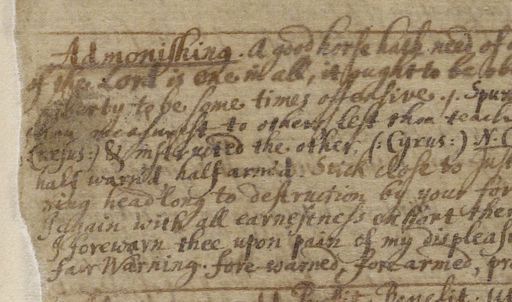 Admonishing. A good horse hath need of a
of the Lord is one in all, it ought to be ob
liberty to be some times offensive. /. Spur
thou measurest to others, Lest thou teach
Cresus:) & instructed the other. /: Cyrus:) N. C
half warn'd, half arm'd. Stick close to Just
ning head long to destruction by your for
I again with all earnestness exhort them
I forewarn thee upon pain of my displeas
fair Warning. fore warned, fore armed, pr